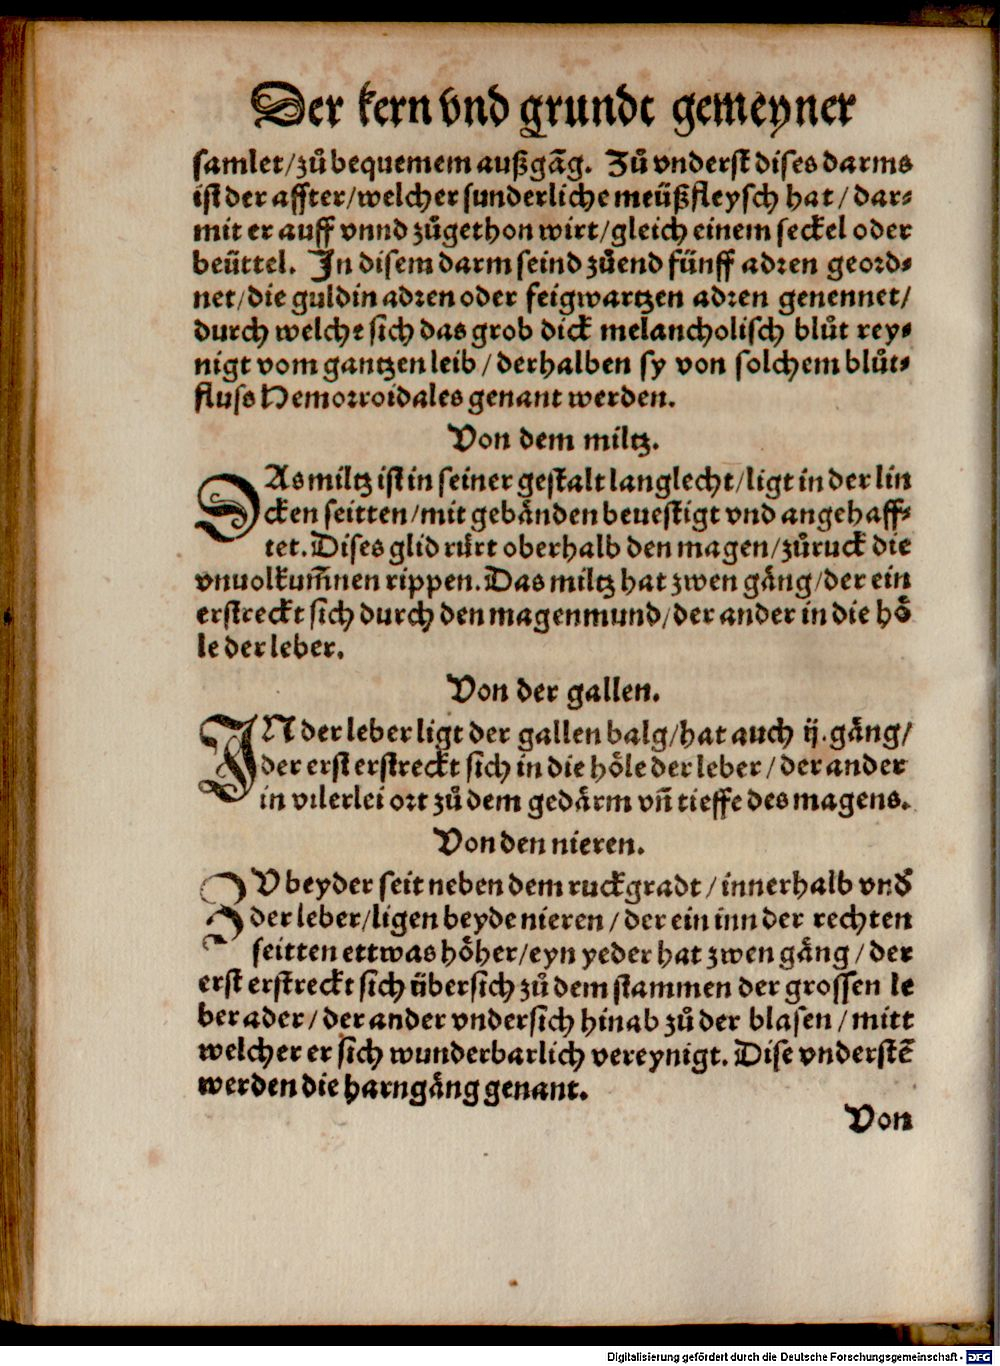 Der kern vnd grundt gemeyner
samlet/zů bequemem außgāg. Zů vnderst dises darms
ist der affter/welcher sunderliche meüßfleysch hat/dar⸗
mit er auff vnnd zůgethon wirt/gleich einem seckel oder
beüttel. In disem darm seind zůend fünff adren geord⸗
net/die guldin adren oder feigwartzen adren genennet/
durch welche sich das grob dick melancholisch blůt rey⸗
nigt vom gantzen leib/derhalben sy von solchem blůt⸗
fluss Hemorroidales genant werden.
Von dem miltz.
DAs miltz ist in seiner gestalt langlecht/ligt in der lin
cken seitten/mit gebånden beuestigt vnd angehaff⸗
tet. Dises glid růrt oberhalb den magen/zůruck die
vnuolkum̄nen rippen. Das miltz hat zwen gång/der ein
erstreckt sich durch den magenmund/der ander in die hoͤ
le der leber.
Von der gallen.
IN der leber ligt der gallen balg/hat auch ij. gång/
der erst erstreckt sich in die hoͤle der leber/der ander
in vilerlei ort zů dem gedårm vn̄ tieffe des magens.
Von den nieren.
ZV beyder seit neben dem ruckgradt/innerhalb vnd̕
der leber/ligen beyde nieren/der ein inn der rechten
seitten ettwas hoͤher/eyn yeder hat zwen gång/der
erst erstreckt sich übersich zů dem stammen der grossen le
ber ader/der ander vndersich hinab zů der blasen/mitt
welcher er sich wunderbarlich vereynigt. Dise vnderstē
werden die harngång genant.
Von
Digitalisierung gefördert durch die Deutsche Forschungsgemeinschaft - DFG